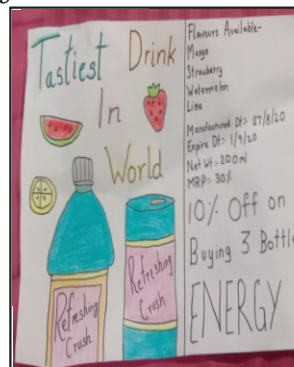 Tastiest Drink
In
World
Refreshing
Crush
Refreshing
Crush
Flavours Available-
Mango
Strawberry
Watermelon
Lime
Manufactured Dt:- 27/8/20
Expire Dt:- 1/9/20
Net Wt:- 200ml
MRP:- 30%
10% Off on
Buying 3 Bottle
ENERGY